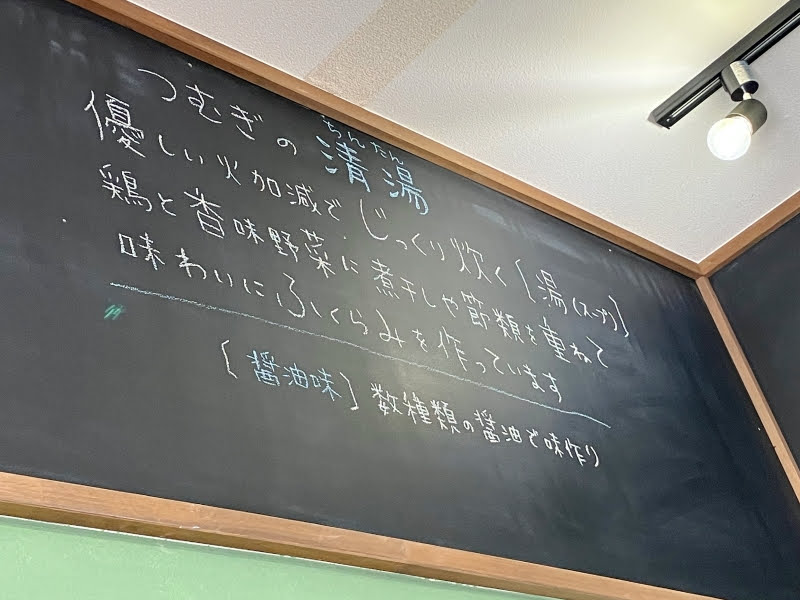 つむぎの清湯
ちんたん
優しい火加減でじっくり炊く[湯(スープ)]
鶏と香味野菜に煮干しや節類を重ねて
味わいにふくらみを作っています
[醤油味] 数種類の醤油で味作り